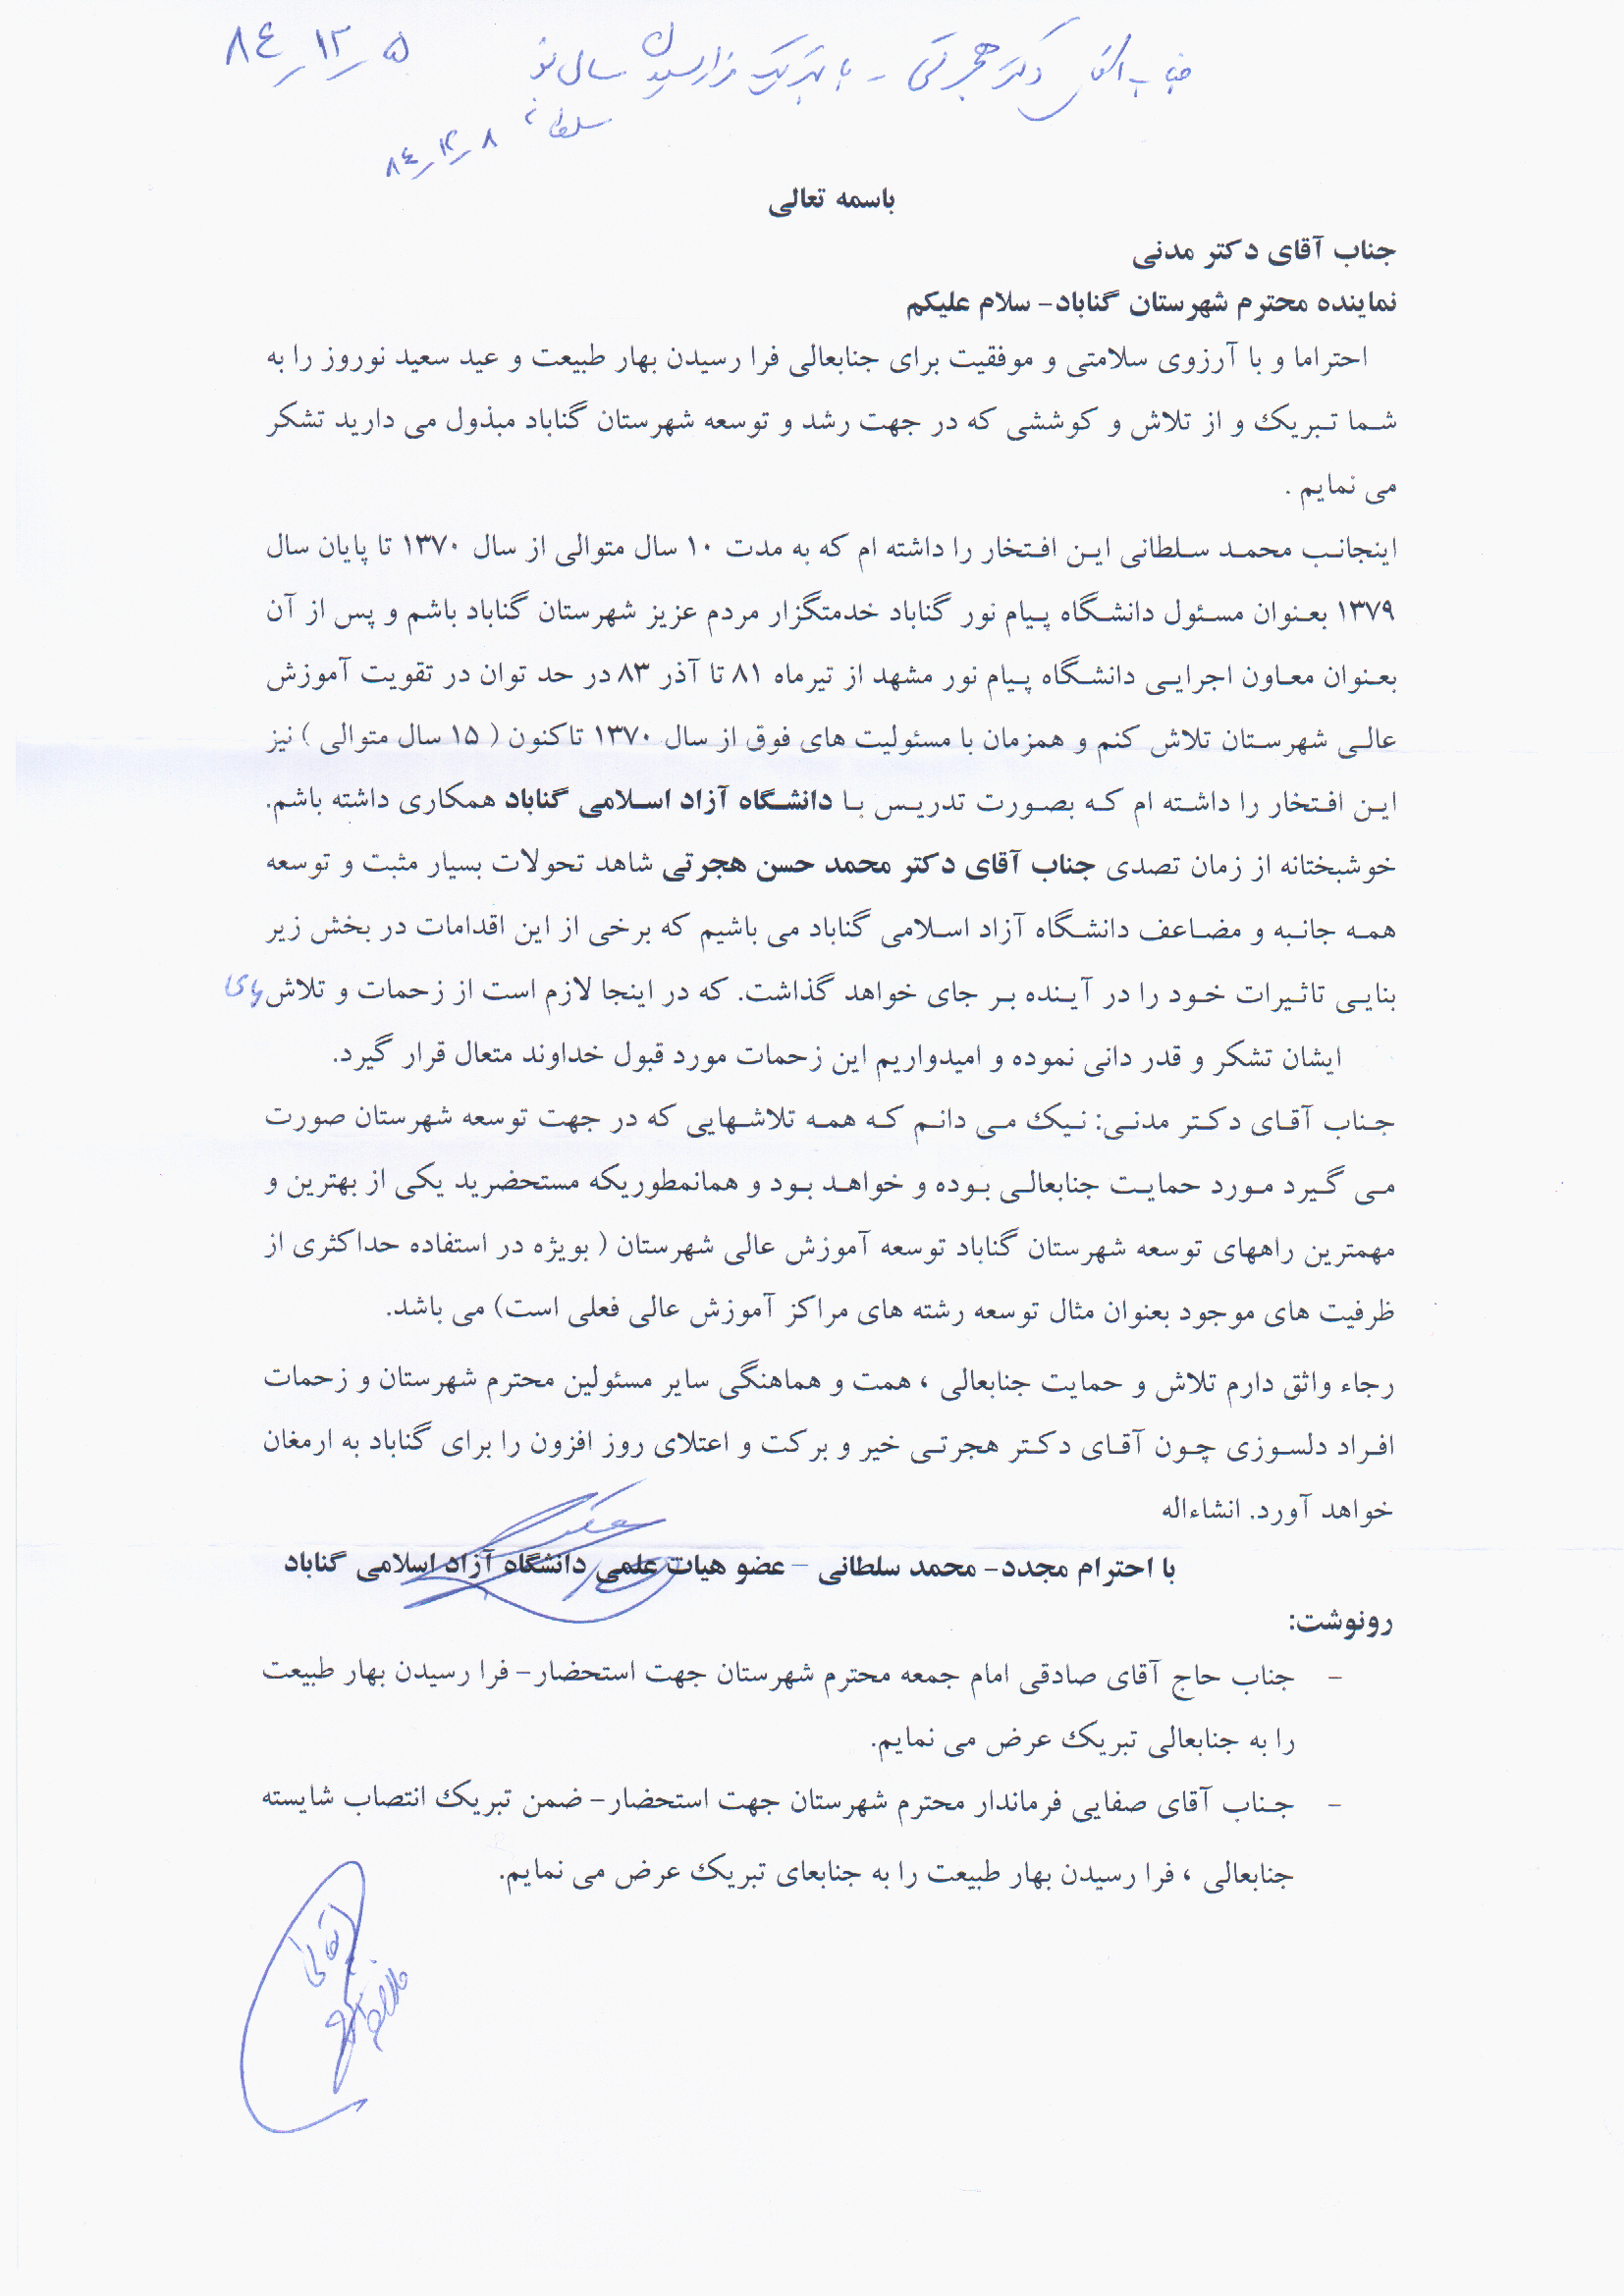 جناب آقای دکتر هجرتی - با تبریک فرارسیدن سال نو
۸۴-۱۲-۵
سلطانی
۸۴-۱۲-۸
باسمه تعالی
جناب آقای دکتر مدنی
نماینده محترم شهرستان گناباد- سلام علیکم
احتراما و با آرزوی سلامتی و موفقیت برای جنابعالی فرا رسیدن بهار طبیعت و عید سعید نوروز را به
شما تبریک و از تلاش و کوششی که در جهت رشد و توسعه شهرستان گناباد مبذول می دارید تشکر
می نمایم .
اینجانب محمد سلطانی این افتخار را داشته ام که به مدت ۱۰ سال متوالی از سال ۱۳۷۰ تا پایان سال
۱۳۷۹ بعنوان مسئول دانشگاه پیام نور گناباد خدمتگزار مردم عزیز شهرستان گناباد باشم و پس از آن
بعنوان معاون اجرایی دانشگاه پیام نور مشهد از تیرماه ۸۱ تا آذر ۸۳ در حد توان در تقویت آموزش
عالی شهرستان تلاش کنم و همزمان با مسئولیت های فوق از سال ۱۳۷۰ تاکنون ( ۱۵ سال متوالی ) نیز
این افتخار را داشته ام که بصورت تدریس با دانشگاه آزاد اسلامی گناباد همکاری داشته باشم.
خوشبختانه از زمان تصدی جناب آقای دکتر محمد حسن هجرتی شاهد تحولات بسیار مثبت و توسعه
همه جانبه و مضاعف دانشگاه آزاد اسلامی گناباد می باشیم که برخی از این اقدامات در بخش زیر
بنایی تاثیرات خود را در آینده بر جای خواهد گذاشت. که در اینجا لازم است از زحمات و تلاش های
ایشان تشکر و قدر دانی نموده و امیدواریم این زحمات مورد قبول خداوند متعال قرار گیرد.
جناب آقای دکتر مدنی: نیک می دانم که همه تلاشهایی که در جهت توسعه شهرستان صورت
می گیرد مورد حمایت جنابعالی بوده و خواهد بود و همانمطوریکه مستحضرید یکی از بهترین و
مهمترین راههای توسعه شهرستان گناباد توسعه آموزش عالی شهرستان ( بویژه در استفاده حداکثری از
ظرفیت های موجود بعنوان مثال توسعه رشته های مراکز آموزش عالی فعلی است) می باشد.
رجاء واثق دارم تلاش و حمایت جنابعالی ، همت و هماهنگی سایر مسئولین محترم شهرستان و زحمات
افراد دلسوزی چون آقای دکتر هجرتی خیر و برکت و اعتلای روز افزون را برای گناباد به ارمغان
خواهد آورد. انشاءاله
با احترام مجدد- محمد سلطانی - عضو هیات علمی دانشگاه آزاد اسلامی گناباد
رونوشت:
- جناب حاج آقای صادقی امام جمعه محترم شهرستان جهت استحضار- فرا رسیدن بهار طبیعت
را به جنابعالی تبریک عرض می نمایم.
- جناب آقای صفایی فرماندار محترم شهرستان جهت استحضار- ضمن تبریک انتصاب شایسته
جنابعالی ، فرا رسیدن بهار طبیعت را به جنابعای تبریک عرض می نمایم.